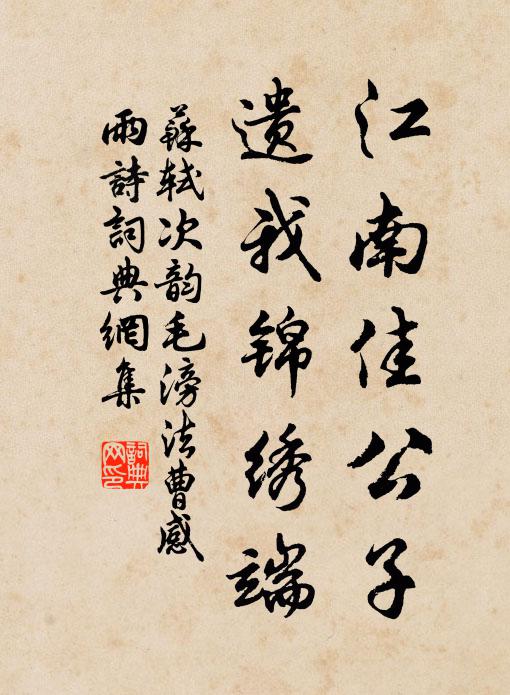 江南佳公子
遗我锦绣端
蘇轼次韵毛滂法曹感
雨詩詞典網集
詞典
网印